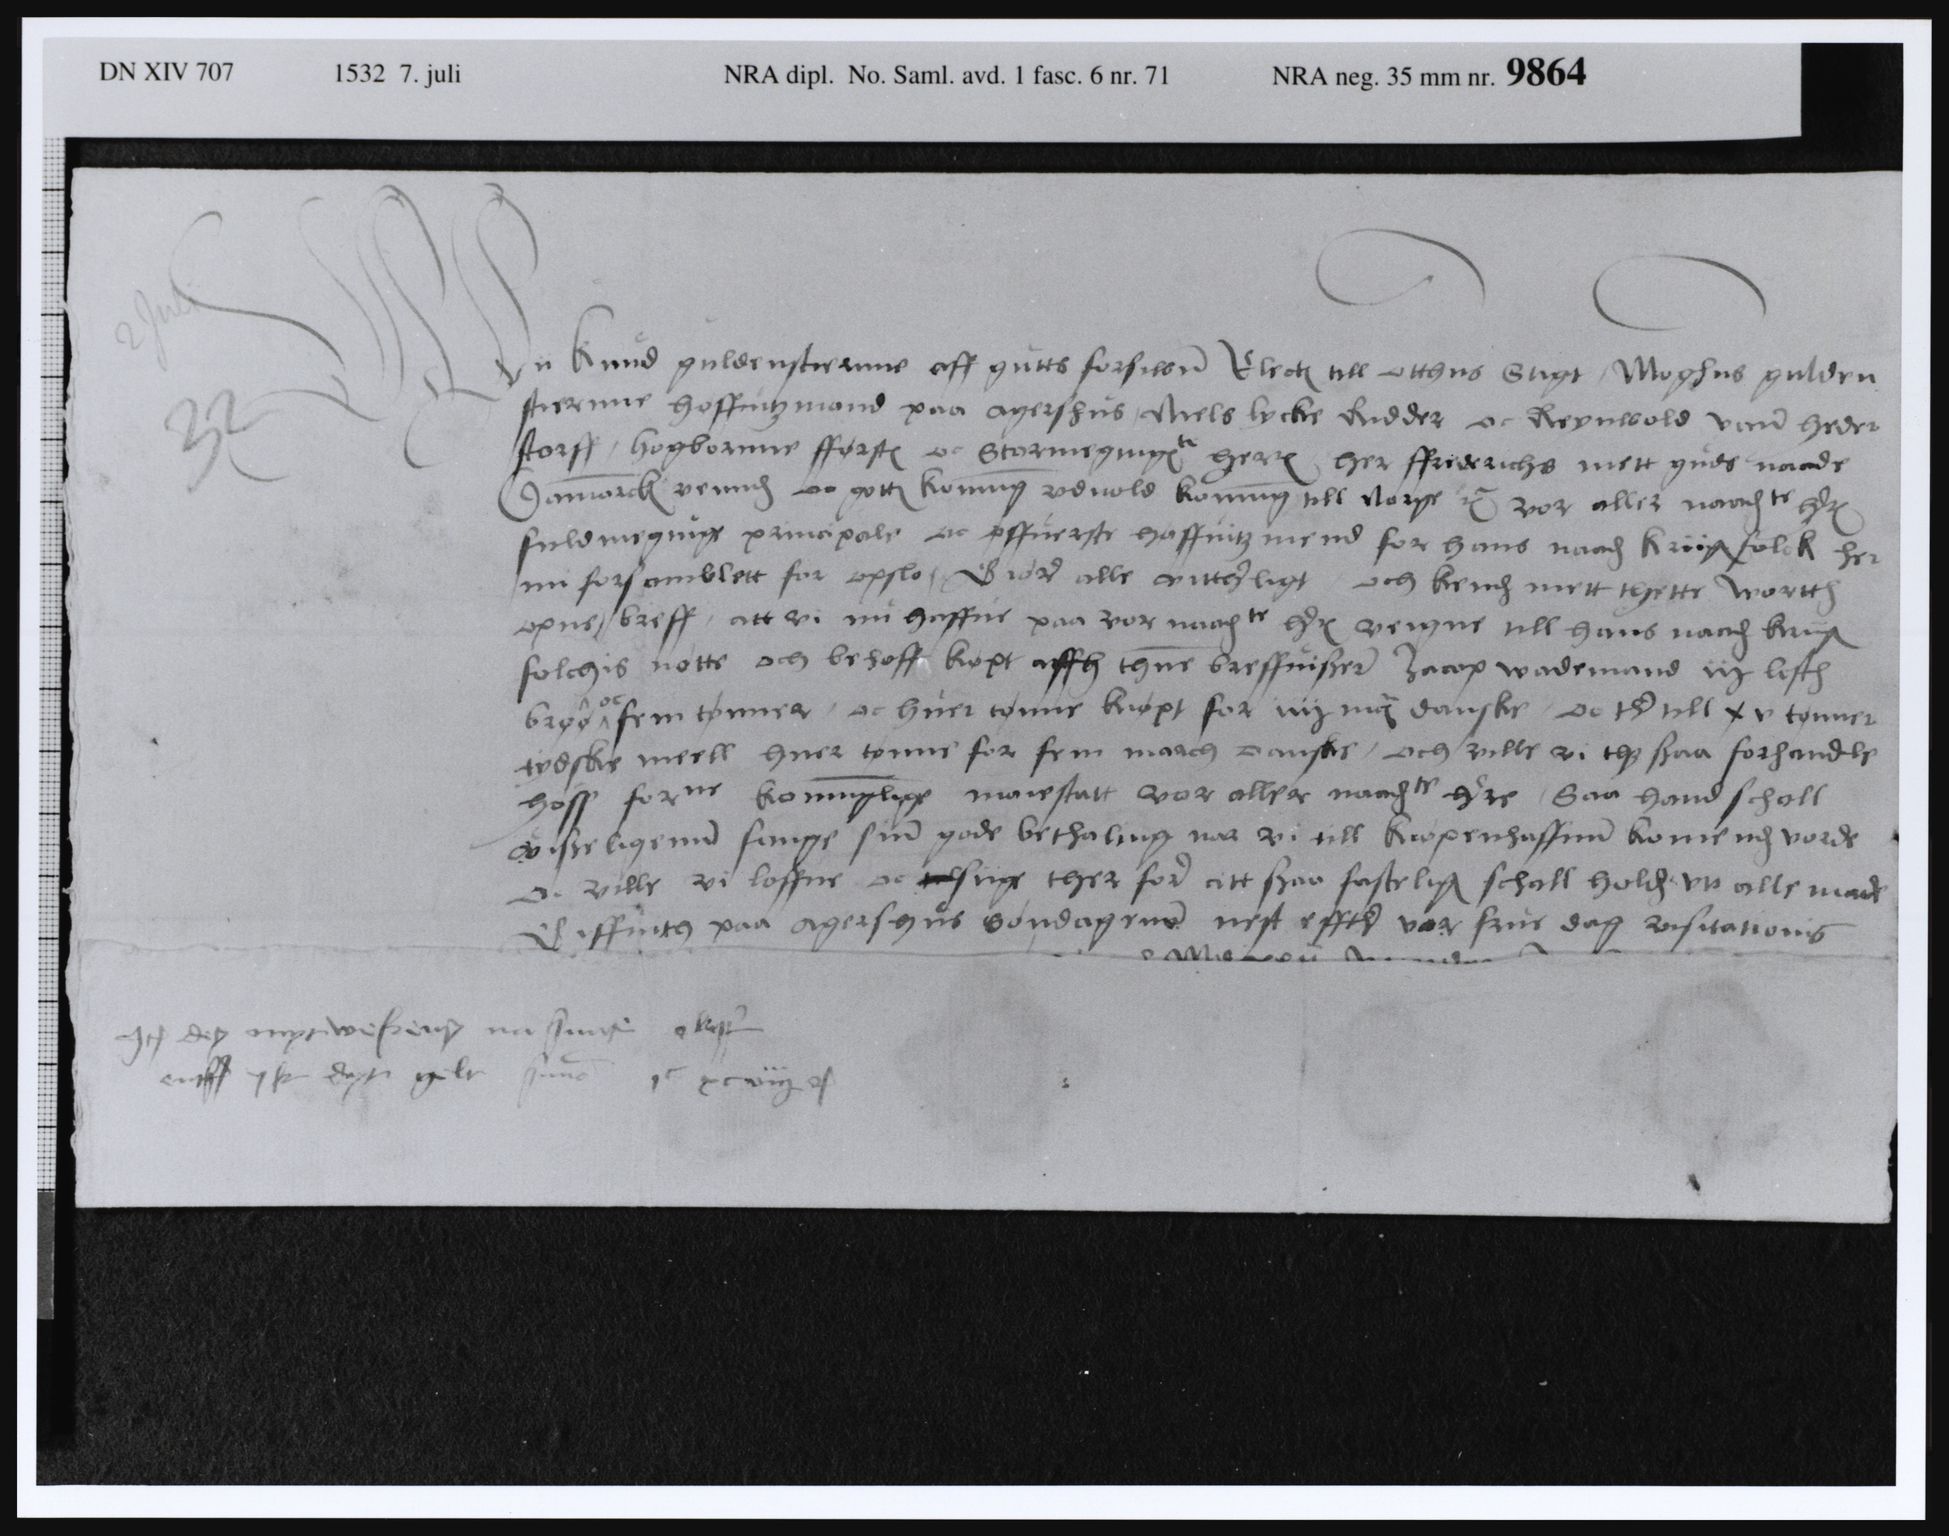 DN XIV 707 1532 7. juli NRA dipl. No. Saml. avd. 1 fasc. 6 nr. 71 NRA neg. 35 mm nr. 9864
2 Juli
32
Vii Knud guldenstiernne aff gutts forsiwn Electi till otthns Stigt, Moghns gulden
stiernne hoffuitzmand paa agershus, Niels lycke Ridder oc Reynwold vann heder
storff, hogbornne fførstis oc Stormegtigste herris her ffrederichs mett guds naade
Danmarcks vennds oc gottis konning vduold konning till Norge etc vor aller naadste herris
fuldmegtige principale oc offuerste hoffuitzmend for hans naads kriigs folck her
nu forsamblett for opslo, Giøre alle vittherligt och kende mett thette wortth
opne breff, att vi nu haffue paa vor naadste herris vegne till hans naads kriigs
folckis nøtte och behoff køpt affh thenne breffuissere Jacop wademand iij lesth
brød oc fem tønner, oc huer tønne kiøpt for iiij marc danske, oc ther till xv tønner
tydske meell huer tønne for fem march danske, och ville vi thet saa forhandle
hoss forne konninglige maiestatt vor aller naadste herre, Saa hand schall
visseligenn fange sin gode bethaling nar vi till kiøpenhaffnn komendes vorde
oc ville vi loffue oc tilsiige ther fore att saa fasteligt schall holdes vti alle made
Giffuith paa agershus Søndagenn nest effther vor frue dag visitationis